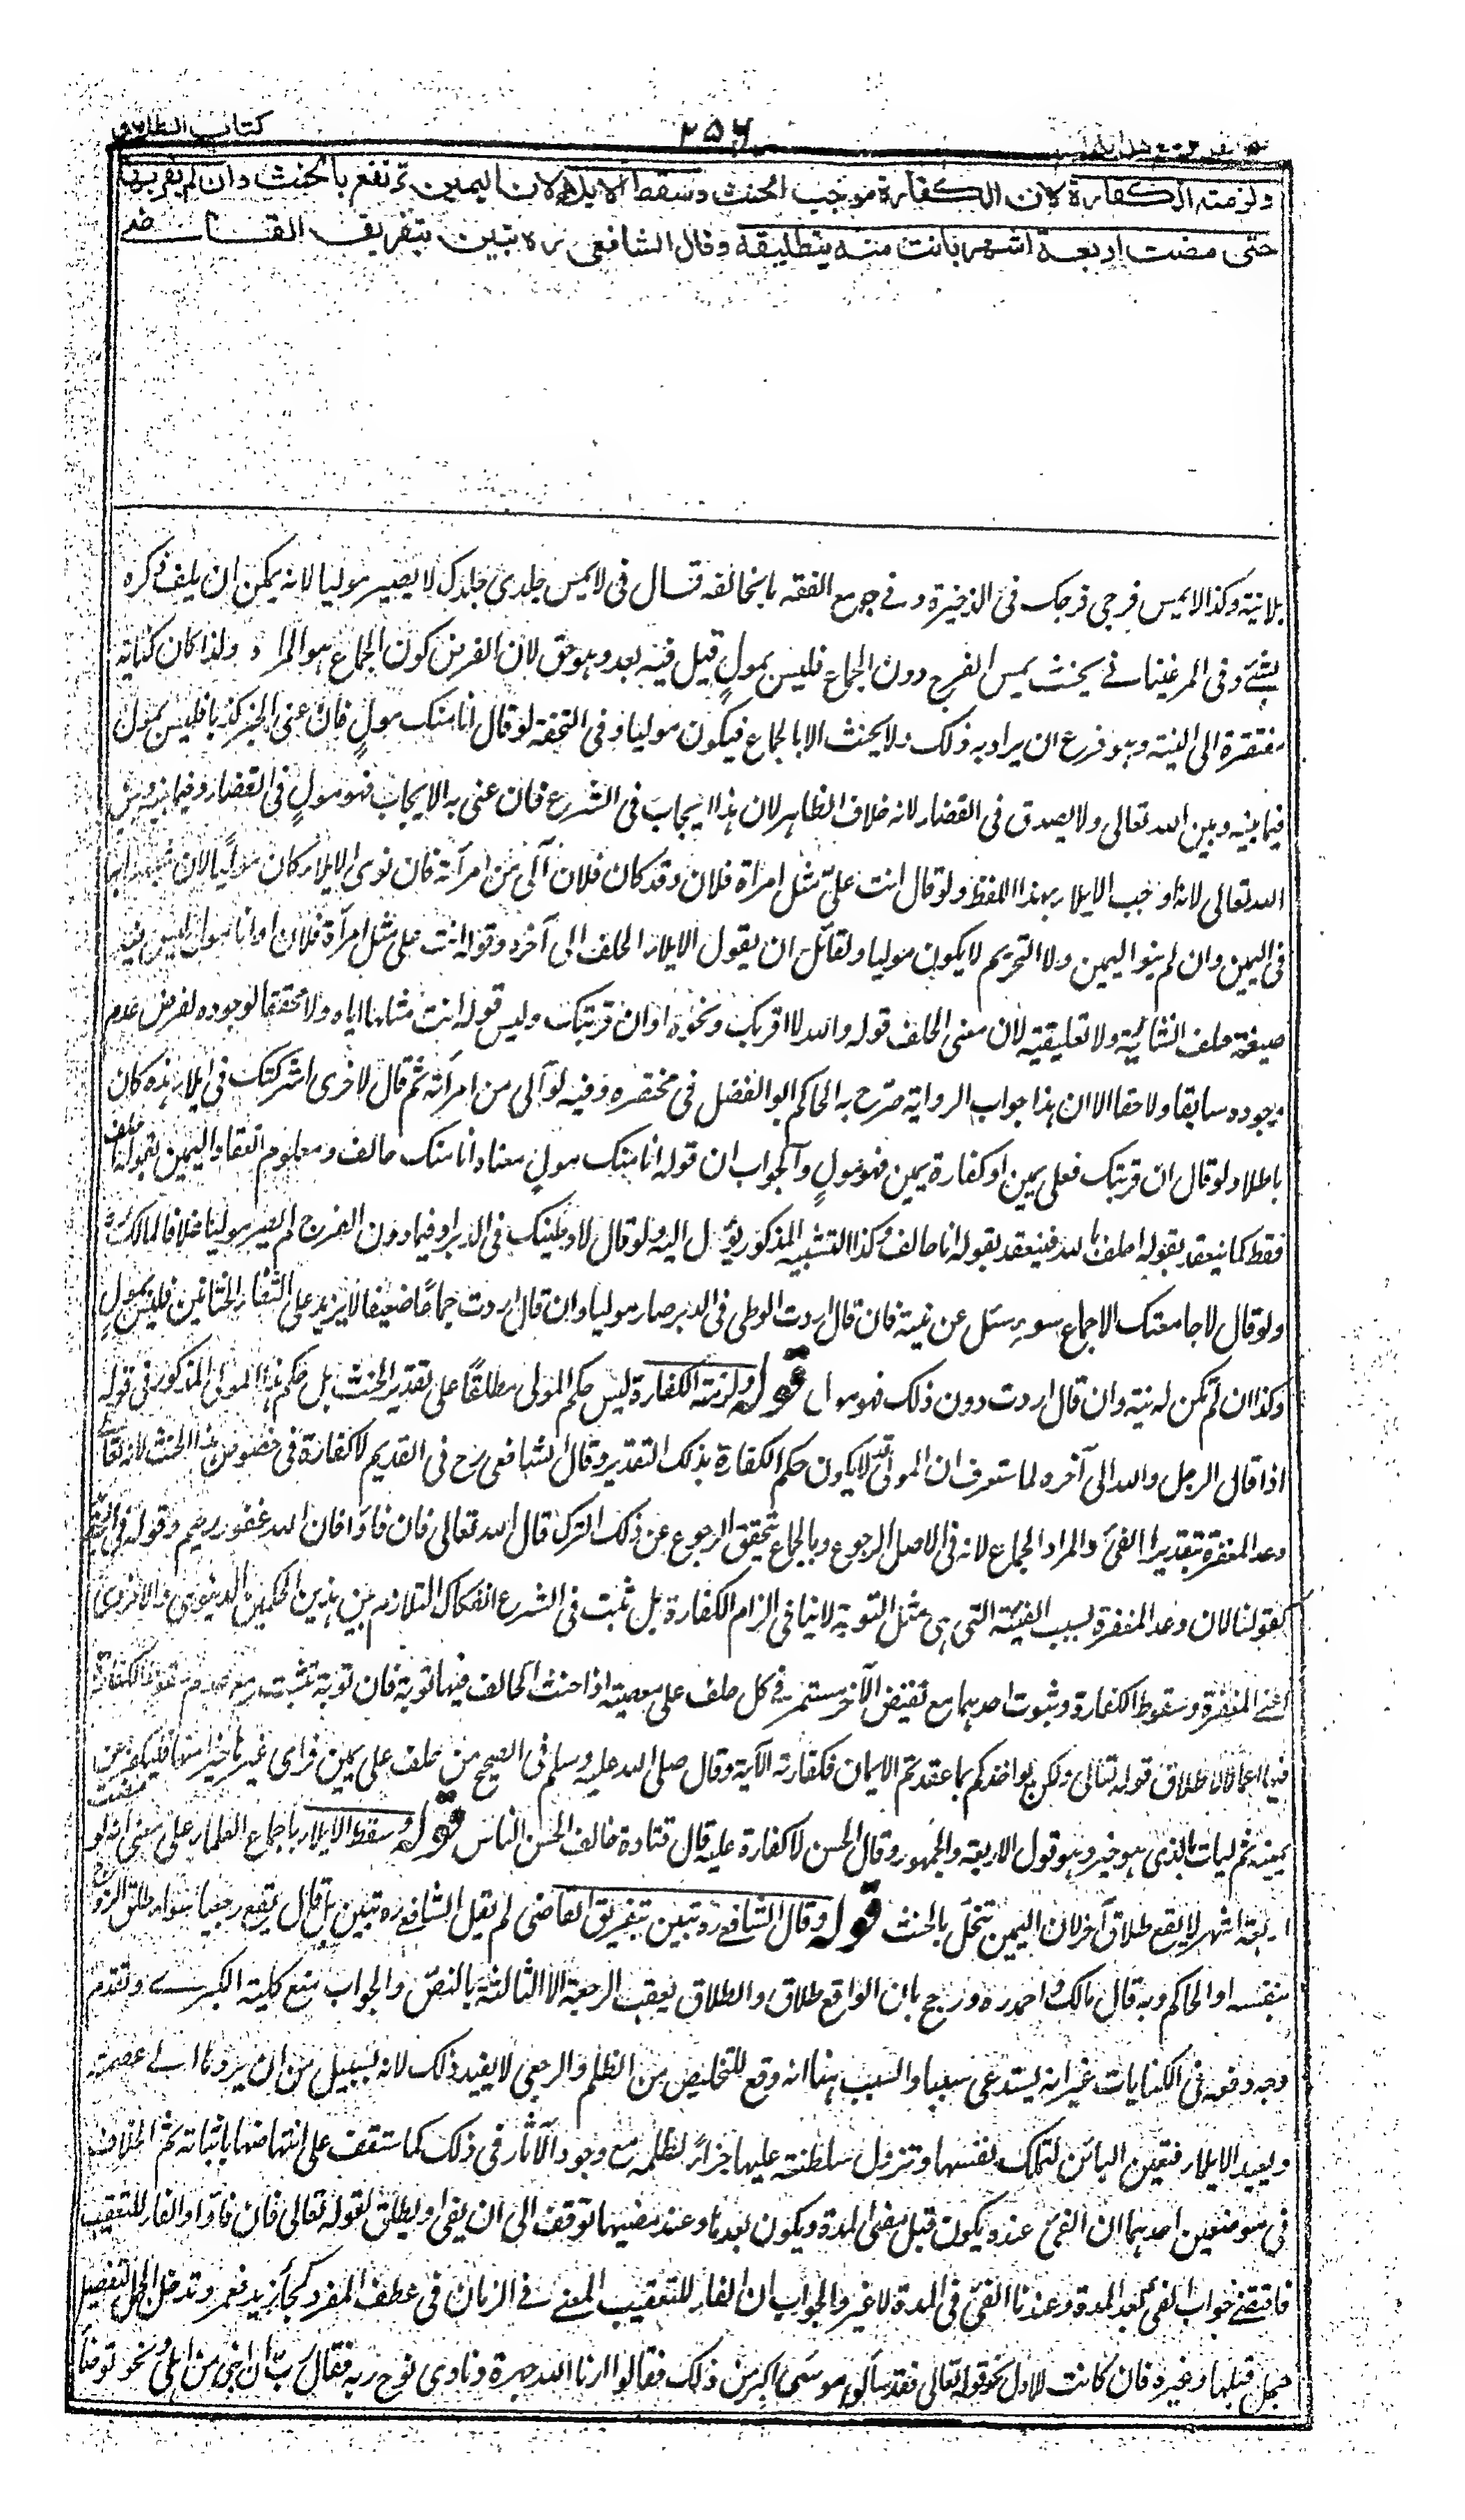 كتاب الطلاق
٢٥٦
ولزمته الكفارة لان الكفارة موجب الحنث وسقط الايلاء لان اليمين ترتفع بالحنث وان لم يقربها
حتى مضت اربعة اشهر بانت منه بتطليقة وقال الشافعي ره تبين بتفريق القاضي
بلانية وكذا لايمس فرجي فرجك في الذخيرة وفي جوامع الفقه ما يخالفه قال في لايمس جلدي جلدك لايصير موليا لانه يمكن ان يلف ذكره
بشئ وفي المرغيناني يحنث بمس الفرج دون الجماع فليس بمولٍ قيل فيه بعد وهو حق لان الفرض كون الجماع هو المراد ولذا كان كناية
مفتقرة الى النية وهو فرع ان يراد به ذلك ولايحنث الا بالجماع فيكون موليا وفي التحفة لو قال انا منك مولٍ فان عنى الخبر كذبا فليس بمول
فيما بينه وبين الله تعالى ولا يصدق في القضاء لانه خلاف الظاهر لان هذا ايجاب في الشرع فان عنى به الايجاب فهو مولٍ في القضاء وفيما بينه وبين
الله تعالى لانه اوجب الايلاء بهذا اللفظ ولو قال انت عليّ مثل امراة فلان وقد كان فلان آلى من امرأته فان نوى الايلاء كان موليًا لان تشبيه بها
في اليمين وان لم ينو اليمين ولا التحريم لايكون موليا ولقائل ان يقول الايلاء الحلف الى آخره وقوله انت علي مثل امرأة فلان او انا مول ليس فيه
صيغة حلف انشائية ولا تعليقية لان معنى الحلف قوله والله لا اقربك ونحوه او ان قربتك وليس قوله انت مثلها اياه ولا محققا لوجوده لفرض عدم
وجوده سابقا ولاحقا الا ان هذا جواب الرواية صرح به الحاكم ابو الفضل في مختصره وفيه لو آلى من امرأته ثم قال لاخرى اشركتك في ايلاء هذه كان
باطلا ولو قال ان قربتك فعلي يمين او كفارة يمين فهو مولٍ والجواب ان قوله انا منك مولٍ معناه انا منك حالف ومعلوم انعقاد اليمين بقوله انا حلف
فقط كما ينعقد بقوله احلف بالله فينعقد بقوله انا حالف وكذا التشبيه المذكور يؤل اليه ولو قال لاوطيتك في الدبر او فيما دون الفرج لم يصر موليا خلافا لمالك
ولو قال لاجامعتك الا جماع سوء سئل عن نيته فان قال اردت الوطي في الدبر صار موليا وان قال اردت جماعًا ضعيفا لايزيد على التقاء الختانين فليس بمولٍ
وكذا ان لم تكن له نية وان قال اردت دون ذلك فهو مول قوله ولزمته الكفارة ليس حكم المولى مطلقًا على تقدير الحنث بل حكم هذا المولى المذكور في قوله
اذا قال الرجل والله الى آخره لما ستعرف ان المولى قد لايكون حكم الكفارة بذلك التقدير وقال الشافعي رح في القديم لا كفارة في خصوص هذا الحنث لانه تعالى
وعد المغفرة بتقدير الفئ والمراد الجماع لانه في الاصل الرجوع وبالجماع تحقق الرجوع عن ذلك الترك قال الله تعالى فان فاؤا فان الله غفور رحيم وقوله في
كقولنا لان وعد المغفرة بسبب الفيئة التي هي مثل التوبة لاينافي الزام الكفارة بل ثبت في الشرع انفكاك التلازم بين هذين الحكمين الدنيوي والاخروي
اعني المغفرة وسقوط الكفارة وثبوت احدهما مع نقيض الآخر مستمر في كل حلف على معصية اذا حنث الحالف فيها توبة فان توبة تثبت مع عدم سقوط الكفارة
فيها اعمالا لاطلاق قوله تعالى ولكن يؤاخذكم بما عقدتم الايمان فكفارته الآية وقال صلى الله عليه وسلم في الصحيح من حلف على يمين فرأى غيرها خيرا منها فليكفر عن
يمينه ثم ليات بالذي هو خير وهو قول الاربعة والجمهور وقال الحسن لا كفارة عليه قال قتادة خالف الحسن الناس قوله وسقط الايلاء باجماع العلماء على معنى انه لو مضت
اربعة اشهر لايقع طلاق آخر لان اليمين تنحل بالحنث قوله وقال الشافعي ره تبين بتفريق القاضي لم يقل الشافعي ره تبين بل قال يقع رجعيا سواء طلق الزوج
بنفسه او الحاكم وبه قال مالك واحمد ره ورجح بان الواقع طلاق والطلاق يعقب الرجعة الا الثالثة بالنص والجواب منع كلية الكبرى وتقدم
وجه دفعه في الكنايات غير انه يستدعي سببا والسبب هنا انه وقع للتخليص من الظلم والرجعي لايفيد ذلك لانه بسبيل من ان يردها الى عصمته
ويعيد الايلاء فتعين البائن لتملك نفسها وتزول سلطنته عليها جزاءً لظلمه مع وجود الآثار في ذلك كما ستقف على انتهاضها باثباته ثم الخلاف
في موضعين احدهما ان الفئ عنده يكون قبل مضي المدة ويكون بعدها وعند مضيها توقف الى ان يفئ او يطلق لقوله تعالى فان فاؤا والفاء للتعقيب
فاقتضى جواب الفئ بعد المدة وعندنا الفئ في المدة لاغير والجواب ان الفاء للتعقيب المعنى في الزمان في عطف المفرد كجاء زيد فعمرو وتدخل الجمل لتفصيل
مجمل قبلها وغيره فان كانت للاول نحو قوله تعالى فقد سألوا موسى اكبر من ذلك فقالوا ارنا الله جهرة ونادى نوح ربه فقال رب ان ابني من اهلي ونحو توضأ